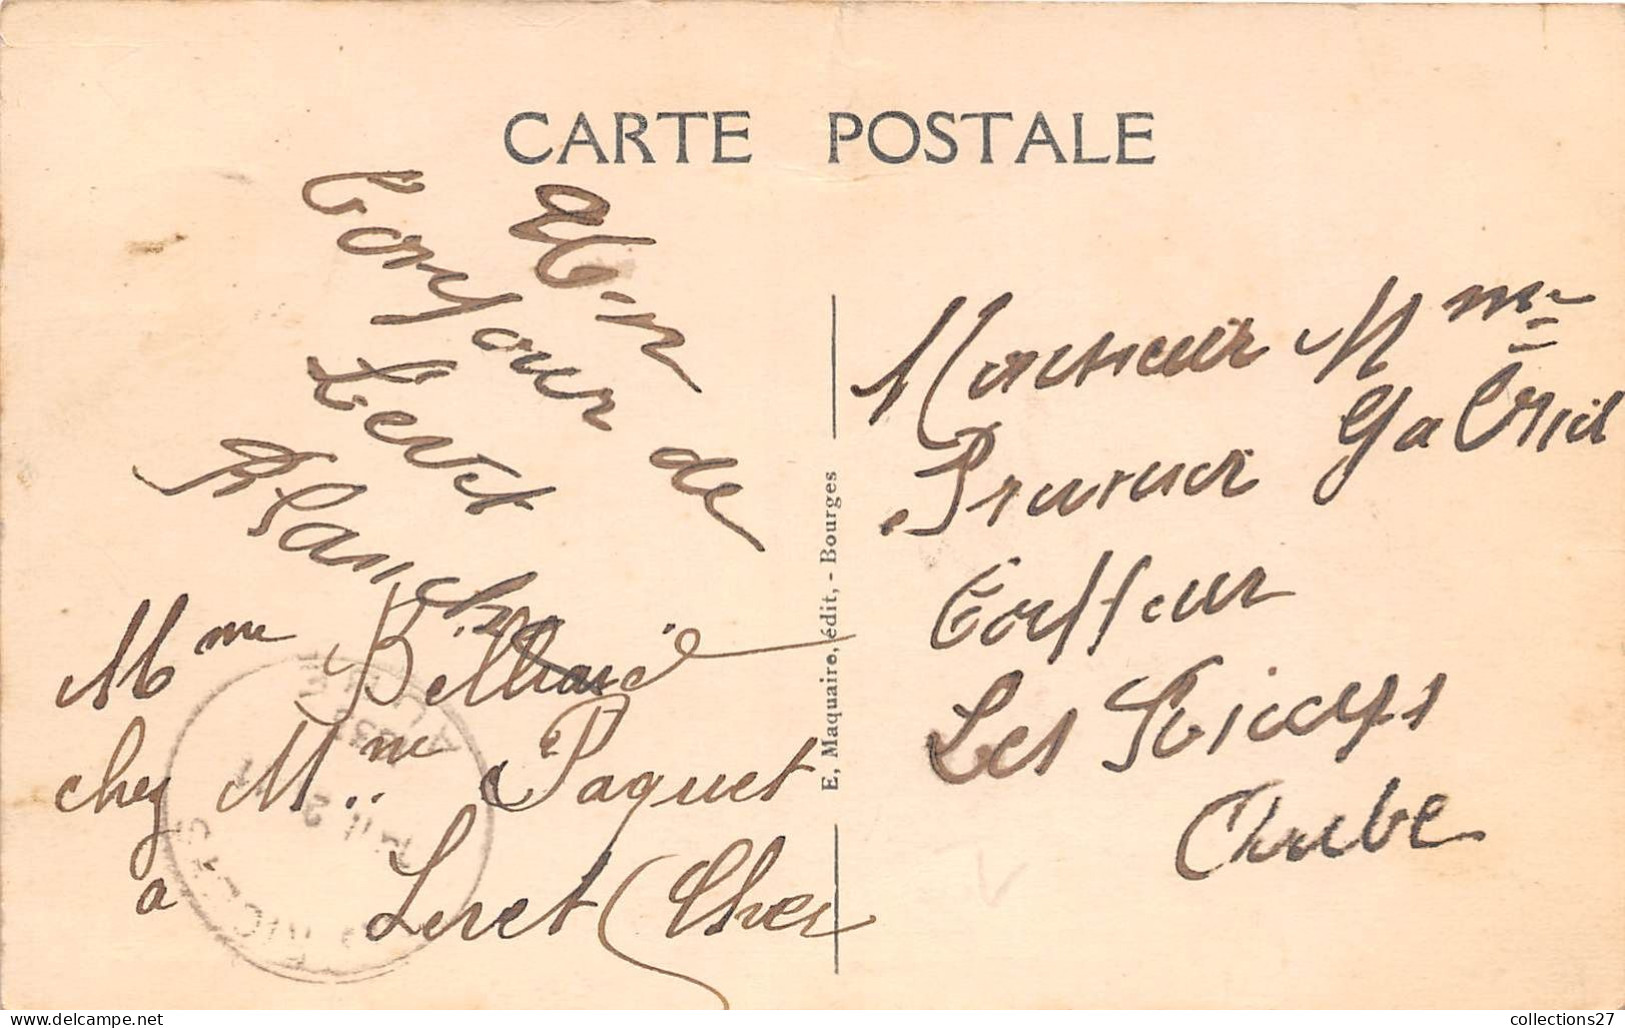 CARTE POSTALE
un
Bonjour de
Levet
Blanche
Mme Billiard
chez Mme Paquet
à Levet (Cher
E. Maquaire, édit, - Bourges
Monsieur Mme
Gabriel
Prunier
Coiffeur
Les Riceys
Aube
collections27